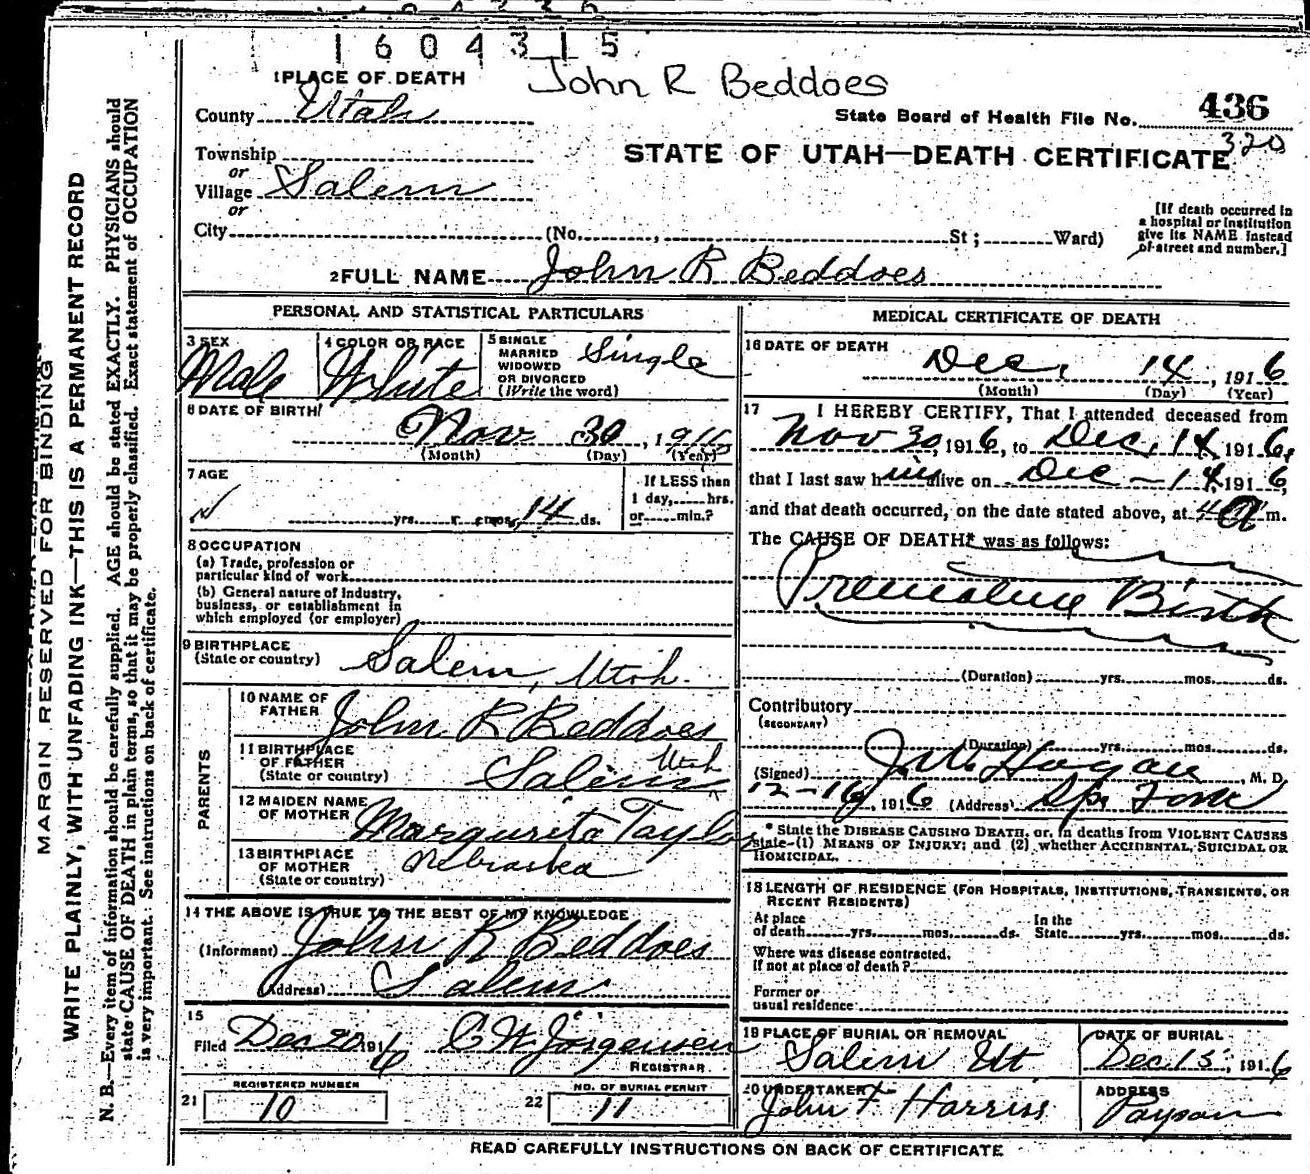 1604315
1 PLACE OF DEATH John R Beddoes
County Utah State Board of Health File No. 436
320
Township
or
STATE OF UTAH—DEATH CERTIFICATE
Village Salem
or
City (No. , St ; Ward)
[If death occurred in
a hospital or institution
give its NAME instead
of street and number.]
2 FULL NAME John R Beddoes
PERSONAL AND STATISTICAL PARTICULARS
3 SEX
Male
4 COLOR OR RACE
White
5 SINGLE
MARRIED
WIDOWED
OR DIVORCED
(Write the word)
Single
6 DATE OF BIRTH
Nov 30, 1916
(Month) (Day) (Year)
7 AGE
yrs. mos. 14 ds.
If LESS than
1 day, hrs.
or min.?
8 OCCUPATION
(a) Trade, profession or
particular kind of work
(b) General nature of industry,
business, or establishment in
which employed (or employer)
9 BIRTHPLACE
(State or country) Salem, Utah.
PARENTS
10 NAME OF
FATHER John R Beddoes
11 BIRTHPLACE
OF FATHER
(State or country) Salem Utah
12 MAIDEN NAME
OF MOTHER Margurite Taylor
13 BIRTHPLACE
OF MOTHER
(State or country) Nebraska
14 THE ABOVE IS TRUE TO THE BEST OF MY KNOWLEDGE
(Informant) John R Beddoes
(Address) Salem
15
Filed Dec 20 1916 C W Jorgensen
REGISTRAR
REGISTERED NUMBER
21 10
NO. OF BURIAL PERMIT
22 11
MEDICAL CERTIFICATE OF DEATH
16 DATE OF DEATH
Dec. 14, 1916
(Month) (Day) (Year)
17 I HEREBY CERTIFY, That I attended deceased from
Nov 30, 1916, to Dec, 14 1916,
that I last saw him alive on Dec – 14, 1916,
and that death occurred, on the date stated above, at 4 a m.
The CAUSE OF DEATH* was as follows:
Premature Birth
(Duration) yrs. mos. ds.
Contributory
(SECONDARY)
(Duration) yrs. mos. ds.
(Signed) J. W. Hagan, M. D.
12-16, 1916 (Address) Spr Fork
* State the DISEASE CAUSING DEATH, or, in deaths from VIOLENT CAUSES
state (1) MEANS OF INJURY; and (2) whether ACCIDENTAL, SUICIDAL OR
HOMICIDAL.
18 LENGTH OF RESIDENCE (FOR HOSPITALS, INSTITUTIONS, TRANSIENTS, OR
RECENT RESIDENTS)
At place In the
of death yrs. mos. ds. State yrs. mos. ds.
Where was disease contracted,
if not at place of death?
Former or
usual residence
19 PLACE OF BURIAL OR REMOVAL
Salem Ut
DATE OF BURIAL
Dec. 15, 1916
20 UNDERTAKER
John F Harriss
ADDRESS
Payson
READ CAREFULLY INSTRUCTIONS ON BACK OF CERTIFICATE
MARGIN RESERVED FOR BINDING
WRITE PLAINLY, WITH UNFADING INK—THIS IS A PERMANENT RECORD
N. B.—Every item of information should be carefully supplied. AGE should be stated EXACTLY. PHYSICIANS should
state CAUSE OF DEATH in plain terms, so that it may be properly classified. Exact statement of OCCUPATION
is very important. See instructions on back of certificate.